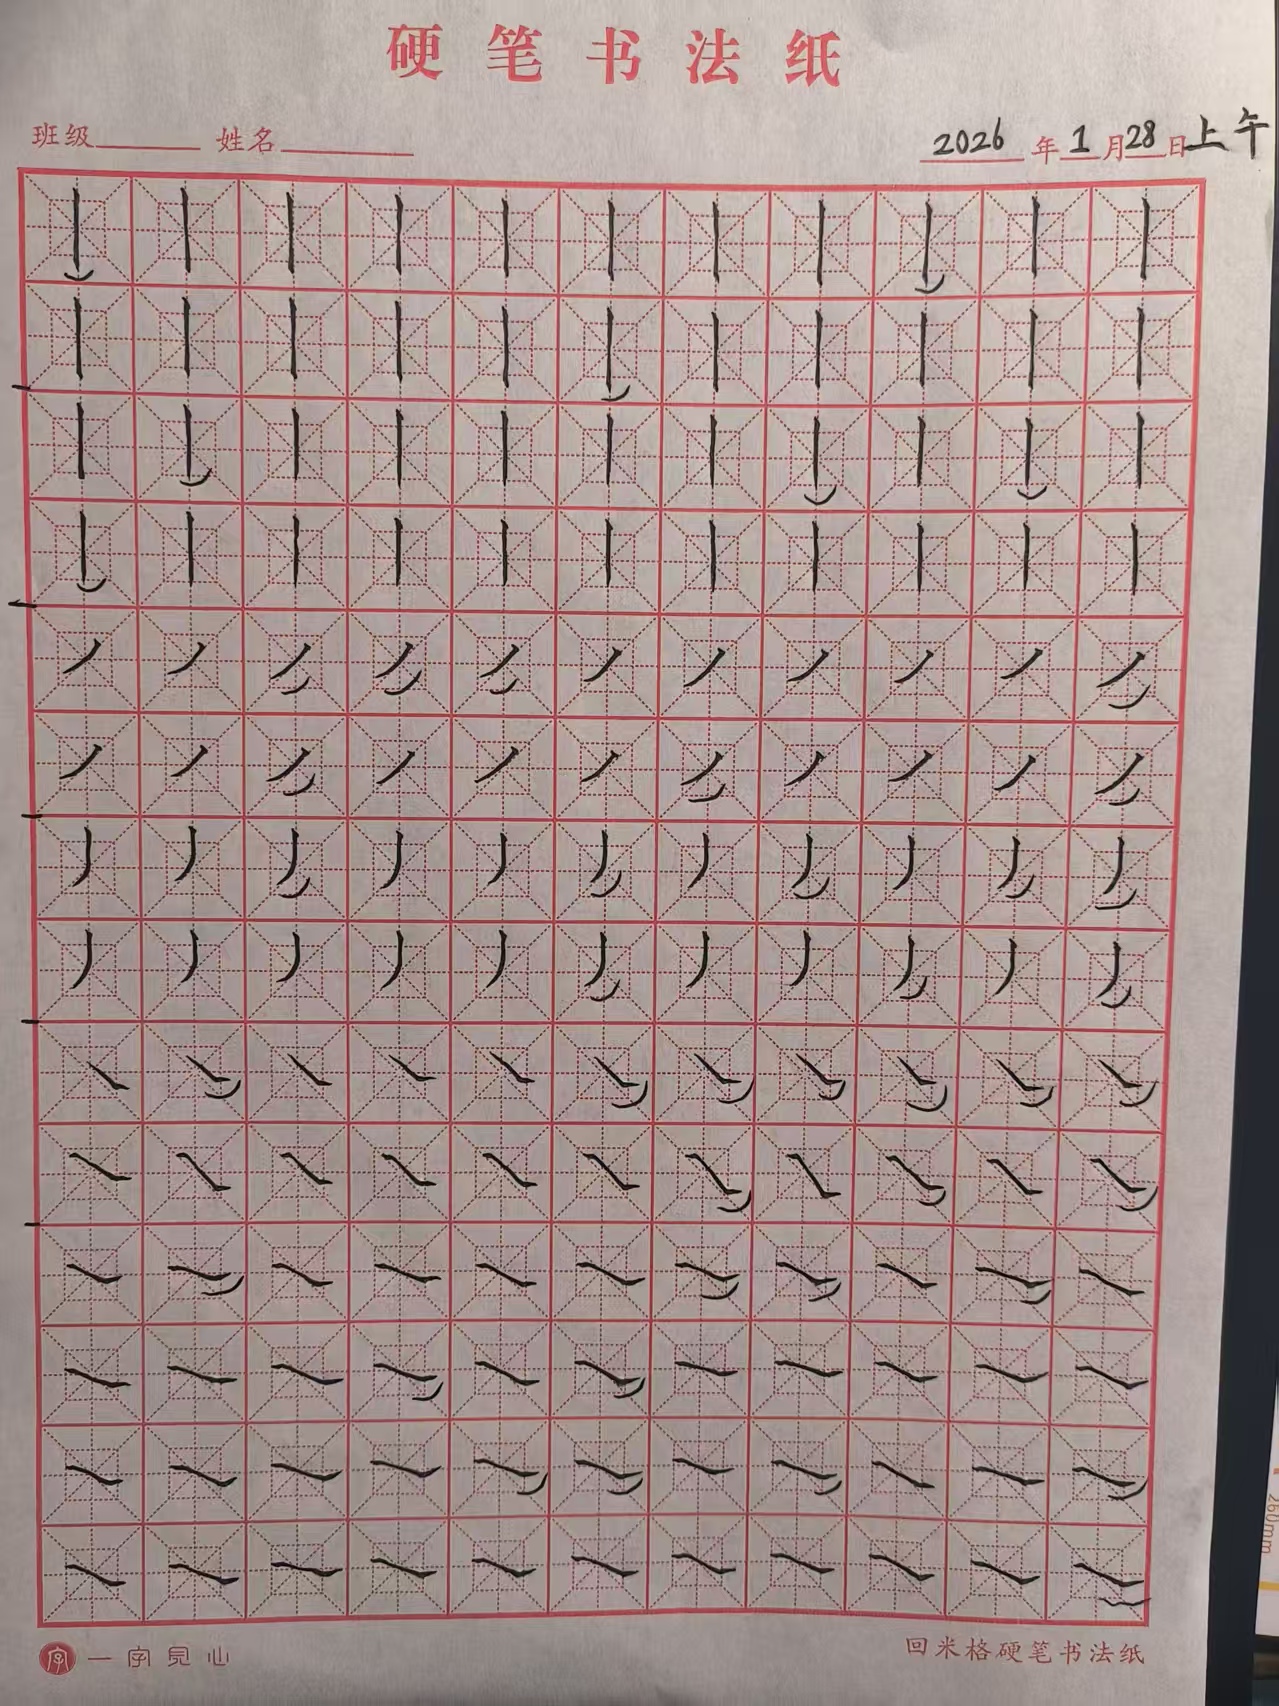 硬笔书法纸
班级 姓名 2026年1月28日上午
一字见心 回米格硬笔书法纸
260mm